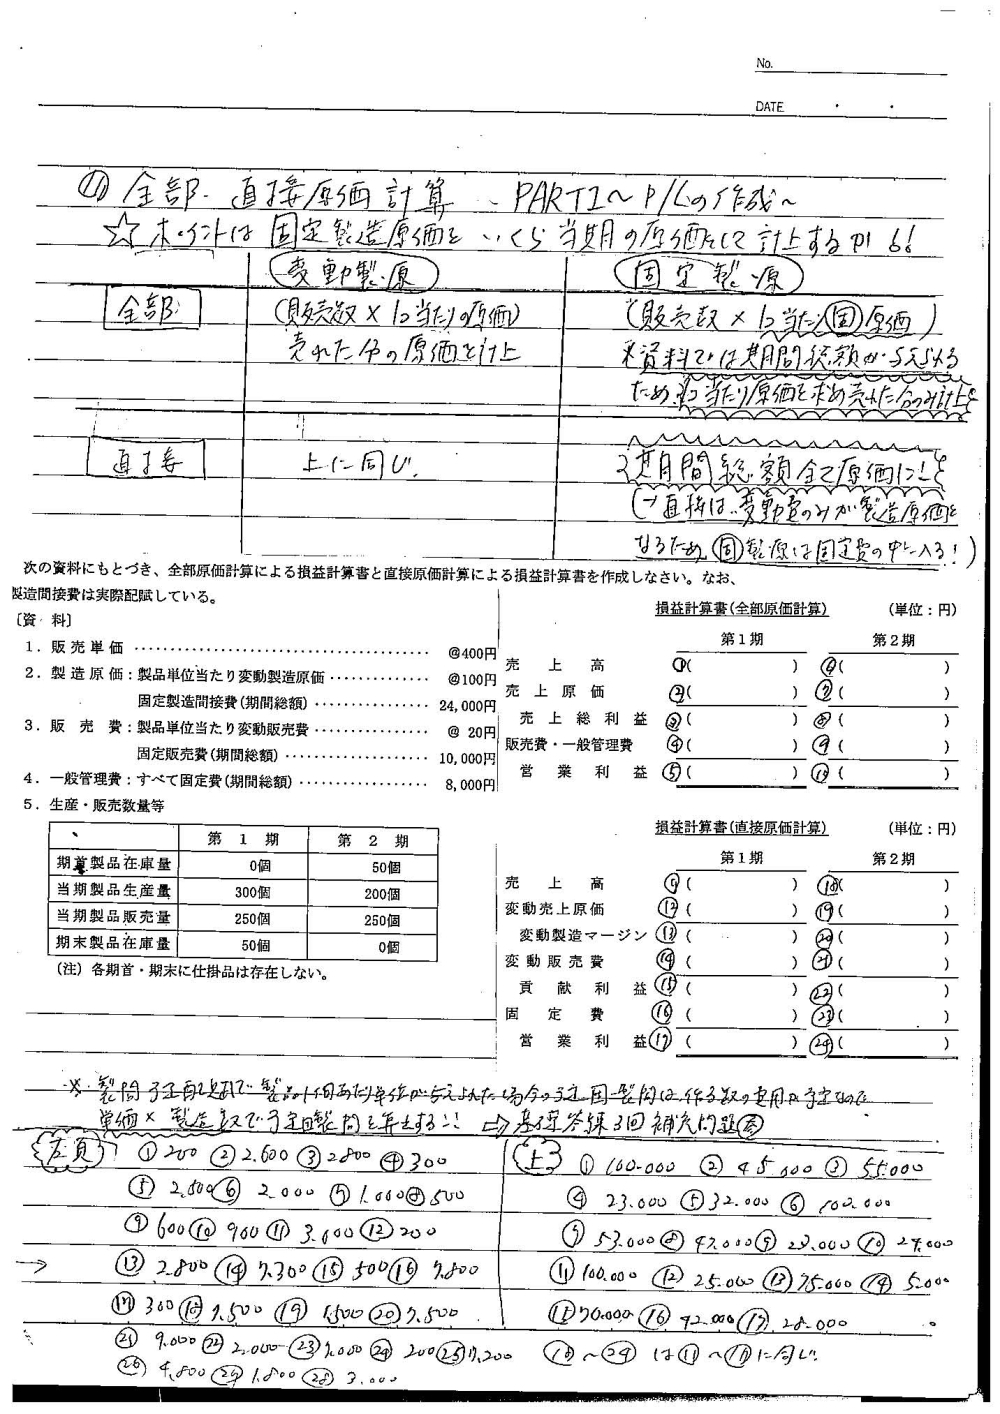 No.
DATE ・ ・
⑪ 全部・直接原価計算 ~PART1~P/Lの作成~
☆ポイントは 固定製造原価を いくら当期の原価として計上するかも!
変動製・原
固定製・原
全部
(販売数×1コ当たりの原価)
売れた分の原価を計上
(販売数×1コ当たり固原価)
※資料では期間総額が与えられる
ため、1コ当たり原価を求め売れた分のみ計上
直接
上に同じ.
期間総額全て原価に!
(→直接は、変動費のみが製造原価と
なるため、固製原は固定費の中に入る!)
次の資料にもとづき、全部原価計算による損益計算書と直接原価計算による損益計算書を作成しなさい。なお、
製造間接費は実際配賦している。
〔資 料〕
1.販売単価 …………………………………… @400円
2.製造原価:製品単位当たり変動製造原価 …………… @100円
固定製造間接費(期間総額) ……………… 24,000円
3.販 売 費:製品単位当たり変動販売費 ……………… @ 20円
固定販売費(期間総額) ………………… 10,000円
4.一般管理費:すべて固定費(期間総額) ……………… 8,000円
5.生産・販売数量等
第 1 期 第 2 期
期首製品在庫量 0個 50個
当期製品生産量 300個 200個
当期製品販売量 250個 250個
期末製品在庫量 50個 0個
(注)各期首・期末に仕掛品は存在しない。
損益計算書(全部原価計算) (単位:円)
第1期 第2期
売 上 高 ①( ) ⑥( )
売 上 原 価 ②( ) ⑦( )
売 上 総 利 益 ③( ) ⑧( )
販売費・一般管理費 ④( ) ⑨( )
営 業 利 益 ⑤( ) ⑩( )
損益計算書(直接原価計算) (単位:円)
第1期 第2期
売 上 高 ⑪( ) ⑱( )
変動売上原価 ⑫( ) ⑲( )
変動製造マージン ⑬( ) ⑳( )
変 動 販 売 費 ⑭( ) ㉑( )
貢 献 利 益 ⑮( ) ㉒( )
固 定 費 ⑯( ) ㉓( )
営 業 利 益 ⑰( ) ㉔( )
単価×製造数で予定固製間を算出する!! ⇒ 基礎答練3回 補充問題
左頁 ① 200 ② 2.600 ③ 2800 ④ 300
⑤ 2.500 ⑥ 2.000 ⑦ 1.000 ⑧ 500
⑨ 600 ⑩ 900 ⑪ 3.600 ⑫ 200
→ ⑬ 2.800 ⑭ 7.300 ⑮ 500 ⑯ 7.800
⑰ 300 ⑱ 7.500 ⑲ 1.500 ⑳ 7.500
㉑ 9.000 ㉒ 2.000 ㉓ 7.000 ㉔ 200 ㉕ 7.200
㉖ 4.800 ㉗ 1.800 ㉘ 3.000
上 ① 100.000 ② 45.000 ③ 55.000
④ 23.000 ⑤ 32.000 ⑥ 100.000
⑦ 53.000 ⑧ 47.000 ⑨ 23.000 ⑩ 24.000
⑪ 100.000 ⑫ 25.000 ⑬ 75.000 ⑭ 5.000
⑮ 70.000 ⑯ 42.000 ⑰ 28.000
⑱~㉔ は⑪~⑰に同じ.